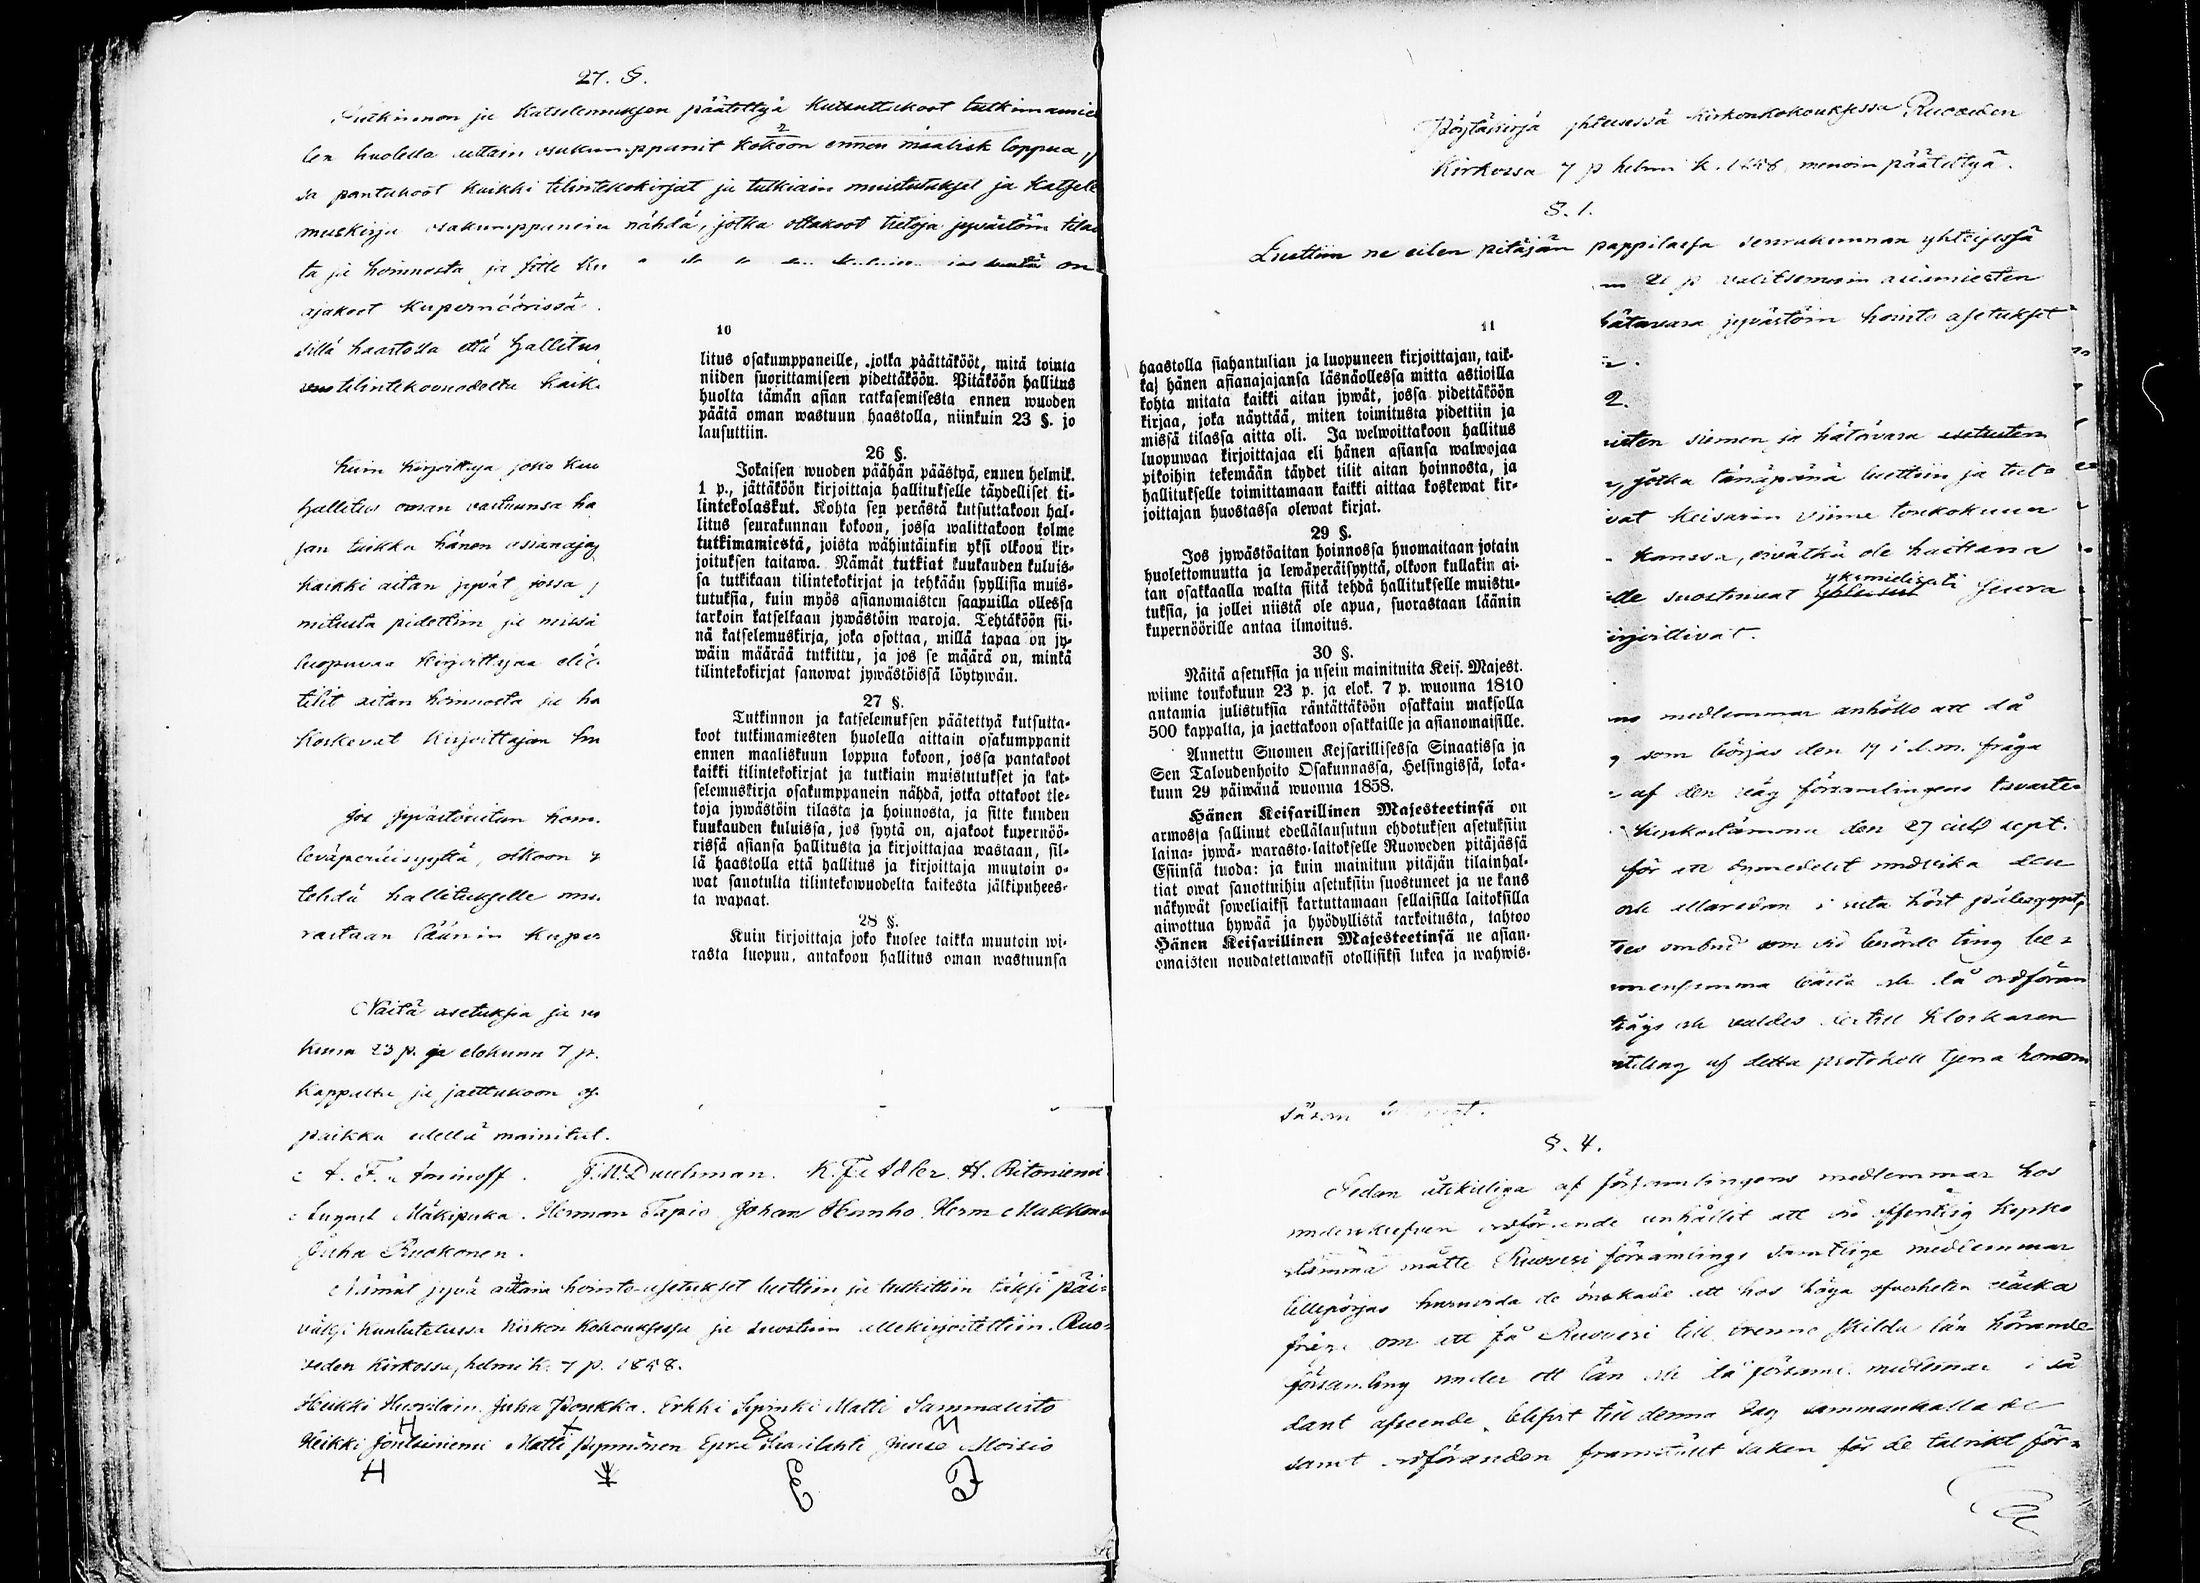 27. §.
Tutkinnon ja Katselemuksen päätettyä kutsuttakoot tutkinamies
ten huolella aittain osakumppanit kokoon ennen maalisk loppua,
sa pantakoot kaikki tilintekokirjat ja tutkiain muistutukset ja katsele
muskirja osakumppanein nähdä, jotka ottakoot tietoja jyvästöin tilas
ta ja hoinnosta, ja sitte ku
ajakoot kupernöörissä
sillä haastolla että hallitus
tilintekovuodelta kaik
kuin kirjoittaja joko kuo
hallitus oman vastuunsa ha
jan taikka hänen asianajaj
kaikki aitan jyvät, jossa
mitusta pidettiin ja missä
luopuvaa kirjoittajaa eli
tilit aitan hoinnosta ja ha
koskevat kirjoittajan huo
Jos jyvästöaitan hoin
leväperäisyyttä, olkoon
tehdä hallitukselle mu
rastaan läänin kuper
Näitä asetuksia ja
kuun 23 p. ja elokuun 7 p.
kappalta ja jaettakoon os
paikka edellä mainitut.
A. F. Aminoff. J. W. Durchman. K. F. Adler. H. Ritoniemi
August Mäkipuka. Herman Tapio Johan Hanho. Herm Makkon
Juha Ruokonen.
Nämät jyvä aittain hointo-asetukset luettiin ja tutkittiin täksi päi
väksi kuulutetussa kirkon kokouksessa ja suostuin allekirjoitettiin. Ruo-
veden Kirkossa, helmi k. 7 p. 1858.
Heikki Juha Penkka. Erkki Matti Sammalisto
Heikki Matti Epra Moisio
10
litus osakumppaneille, jotka päättäkööt, mitä tointa
niiden suorittamiseen pidettäköön. Pitäköön hallitus
huolta tämän asian ratkasemisesta ennen wuoden
päätä oman wastuun haastolla, niinkuin 23 §. jo
lausuttiin.
26 §.
Jokaisen wuoden päähän päästyä, ennen helmik.
1 p., jättäköön kirjoittaja hallitukselle täydelliset ti-
lintekolaskut. Kohta sen perästä kutsuttakoon hal-
litus seurakunnan kokoon, jossa walittakoon kolme
tutkimamiestä, joista wähintäinkin yksi olkoon kir-
joituksen taitawa. Nämät tutkiat kuukauden kuluis-
sa tutkikaan tilintekokirjat ja tehkään syyllisiä muis-
tutuksia, kuin myös asianomaisten saapuilla ollessa
tarkoin katselkaan jywästöin waroja. Tehtäköön sii-
nä katselemuskirja, joka osottaa, millä tapaa on jy-
wäin määrää tutkittu, ja jos se määrä on, minkä
tilintekokirjat sanowat jywästöissä löytywän.
27 §.
Tutkinnon ja katselemuksen päätettyä kutsutta-
koot tutkimamiesten huolella aittain osakumppanit
ennen maaliskuun loppua kokoon, jossa pantakoot
kaikki tilintekokirjat ja tutkiain muistutukset ja kat-
selemuskirja osakumppanein nähdä, jotka ottakoot tie-
toja jywästöin tilasta ja hoinnosta, ja sitte kuuden
kuukauden kuluissa, jos syytä on, ajakoot kupernöö-
rissä asiansa hallitusta ja kirjoittajaa wastaan, sil-
lä haastolla että hallitus ja kirjoittaja muutoin o-
wat sanotulta tilintekowuodelta kaikesta jälkipuhees-
ta wapaat.
28 §.
Kuin kirjoittaja joko kuolee taikka muutoin wi-
rasta luopuu, antakoon hallitus oman wastuunsa
11
haastolla siahantulian ja luopuneen kirjoittajan, taik-
ka hänen asianajajansa läsnäollessa mitta astioilla
kohta mitata kaikki aitan jywät, jossa pidettäköön
kirjaa, joka näyttää, miten toimitusta pidettiin ja
missä tilassa aitta oli. Ja welwoittakoon hallitus
luopuwaa kirjoittajaa eli hänen asiansa walwojaa
pikoihin tekemään täydet tilit aitan hoinnosta, ja
hallitukselle toimittamaan kaikki aittaa koskewat kir-
joittajan huostassa olewat kirjat.
29 §.
Jos jywästöaitan hoinnossa huomaitaan jotain
huolettomuutta ja lewäperäisyyttä, olkoon kullakin ai-
tan osakkaalla walta siitä tehdä hallitukselle muistu-
tuksia, ja jollei niistä ole apua, suorastaan läänin
kupernöörille antaa ilmoitus.
30 §.
Näitä asetuksia ja usein mainituita Keis. Majest.
wiime toukokuun 23 p. ja elok. 7 p. wuonna 1810
antamia julistuksia räntättäköön osakkain maksolla
500 kappalta, ja jaettakoon osakkaille ja asianomaisille.
Annettu Suomen Keisarillisessa Sinaatissa ja
Sen Taloudenhoito Osakunnassa, Helsingissä, loka-
kuun 29 päiwänä wuonna 1858.
Hänen Keisarillinen Majesteetinsä on
armossa sallinut edellälausutun ehdotuksen asetuksiin
laina- jywä- warasto-laitokselle Ruoweden pitäjässä
Esiinsä tuoda: ja kuin mainitun pitäjän tilainhal-
tiat owat sanottuihin asetuksiin suostuneet ja ne kans
näkywät soweliaiksi kartuttamaan sellaisilla laitoksilla
aiwottua hywää ja hyödyllistä tarkoitusta, tahtoo
Hänen Keisarillinen Majesteetinsä ne asian-
omaisten noudatettawaksi otollisiksi lukea ja wahwis-
Pöytäkirja yhteisessä kirkonkokouksessa Ruoveden
Kirkossa 7 p helmi k. 1858 menoin päätettyä.
§. 1.
Luettiin ne eilen pitäjän pappilassa seurakunnan yhteisessä
21 p valitsemain asiamiesten
hätävara jyvästöin hointo asetukset
2.
isten siemen ja hätävara asetusten
jotka tänäpänä luettiin ja tut-
ivat Keisarin viime toukokuun
kanssa, eivätkä ole haittana
lle suostuivat yksmielisesti seura
irjoittivat.
medlemmar anhöllo att då
som börjas den 19 i d.m. fråga
af den väg församlingens
kyrkostämma den 27 sept.
för att undvika den
i sista höst
ombud som vid berörde ting be-
summa bära och då ordföran
valdes dertill klockaren
af detta protokoll tjena honom
§. 4.
Sedan åtskilliga af församlingens medlemmar hos
ordförande anhållit att vid offentlig kyrko
stämma måtte Ruovesi församlings samtlige medlemmar
tillspörjas huruvida de önskade att hos höga öfverheten väcka
fråga om att få Ruovesi till trenne skilda län hörande
församling under ett län och då församl. medlemar i så
dant afseende blifvit till denna dag sammankallade
samt ordföranden framställt saken för de talrikt för-